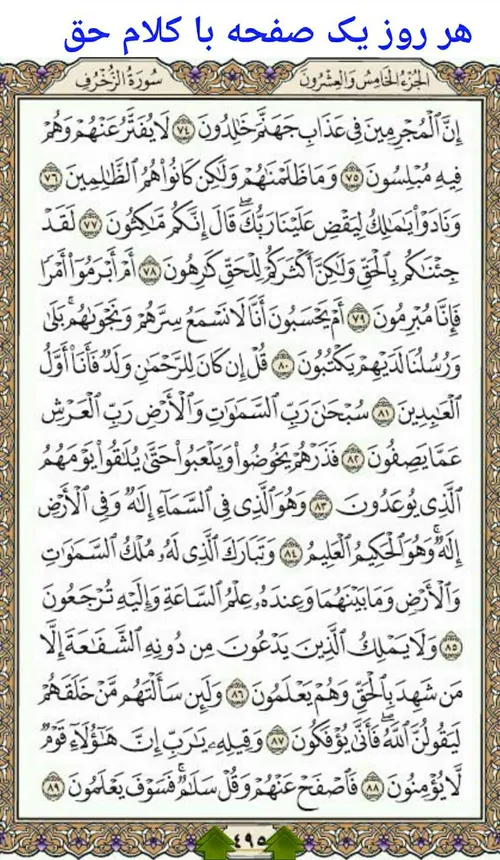 هر روز یک صفحه با کلام حق
الجزء الخامس والعشرون
سورة الزخرف
إِنَّ ٱلْمُجْرِمِينَ فِى عَذَابِ جَهَنَّمَ خَٰلِدُونَ ٧٤ لَا يُفَتَّرُ عَنْهُمْ وَهُمْ
فِيهِ مُبْلِسُونَ ٧٥ وَمَا ظَلَمْنَٰهُمْ وَلَٰكِن كَانُوا۟ هُمُ ٱلظَّٰلِمِينَ ٧٦
وَنَادَوْا۟ يَٰمَٰلِكُ لِيَقْضِ عَلَيْنَا رَبُّكَ ۖ قَالَ إِنَّكُم مَّٰكِثُونَ ٧٧ لَقَدْ
جِئْنَٰكُم بِٱلْحَقِّ وَلَٰكِنَّ أَكْثَرَكُمْ لِلْحَقِّ كَٰرِهُونَ ٧٨ أَمْ أَبْرَمُوٓا۟ أَمْرًا
فَإِنَّا مُبْرِمُونَ ٧٩ أَمْ يَحْسَبُونَ أَنَّا لَا نَسْمَعُ سِرَّهُمْ وَنَجْوَىٰهُم ۚ بَلَىٰ
وَرُسُلُنَا لَدَيْهِمْ يَكْتُبُونَ ٨٠ قُلْ إِن كَانَ لِلرَّحْمَٰنِ وَلَدٌ فَأَنَا۠ أَوَّلُ
ٱلْعَٰبِدِينَ ٨١ سُبْحَٰنَ رَبِّ ٱلسَّمَٰوَٰتِ وَٱلْأَرْضِ رَبِّ ٱلْعَرْشِ
عَمَّا يَصِفُونَ ٨٢ فَذَرْهُمْ يَخُوضُوا۟ وَيَلْعَبُوا۟ حَتَّىٰ يُلَٰقُوا۟ يَوْمَهُمُ
ٱلَّذِى يُوعَدُونَ ٨٣ وَهُوَ ٱلَّذِى فِى ٱلسَّمَآءِ إِلَٰهٌ وَفِى ٱلْأَرْضِ
إِلَٰهٌ ۚ وَهُوَ ٱلْحَكِيمُ ٱلْعَلِيمُ ٨٤ وَتَبَارَكَ ٱلَّذِى لَهُۥ مُلْكُ ٱلسَّمَٰوَٰتِ
وَٱلْأَرْضِ وَمَا بَيْنَهُمَا وَعِندَهُۥ عِلْمُ ٱلسَّاعَةِ وَإِلَيْهِ تُرْجَعُونَ
٨٥ وَلَا يَمْلِكُ ٱلَّذِينَ يَدْعُونَ مِن دُونِهِ ٱلشَّفَٰعَةَ إِلَّا
مَن شَهِدَ بِٱلْحَقِّ وَهُمْ يَعْلَمُونَ ٨٦ وَلَئِن سَأَلْتَهُم مَّنْ خَلَقَهُمْ
لَيَقُولُنَّ ٱللَّهُ ۖ فَأَنَّىٰ يُؤْفَكُونَ ٨٧ وَقِيلِهِۦ يَٰرَبِّ إِنَّ هَٰٓؤُلَآءِ قَوْمٌ
لَّا يُؤْمِنُونَ ٨٨ فَٱصْفَحْ عَنْهُمْ وَقُلْ سَلَٰمٌ ۚ فَسَوْفَ يَعْلَمُونَ ٨٩
٤٩٥